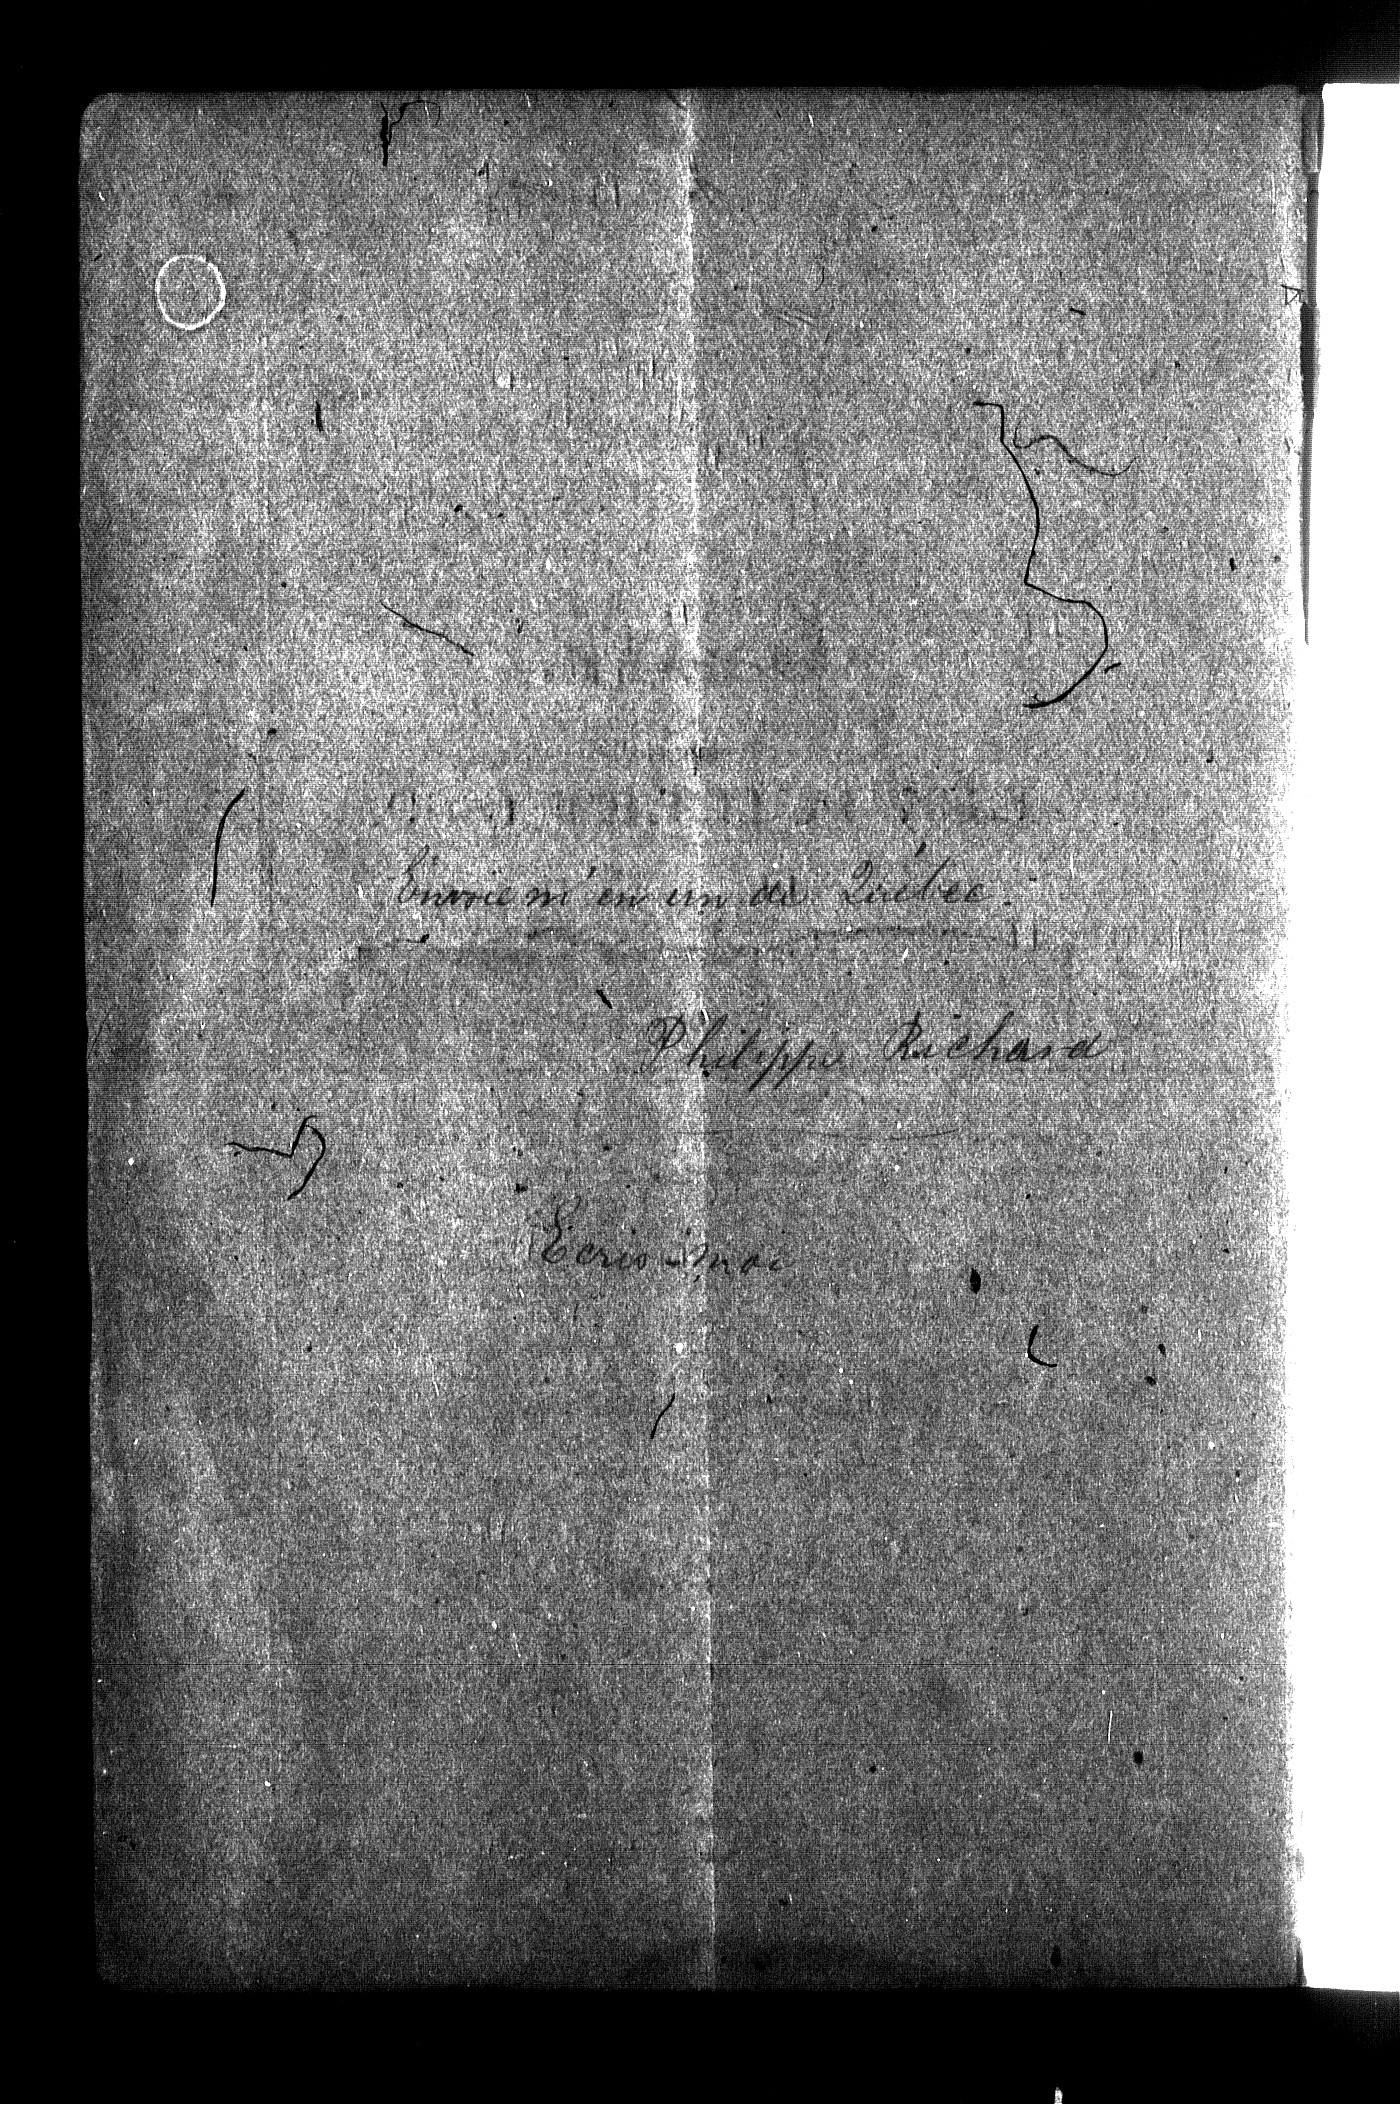 Envoie m'en un de Québec.
Philippe Richard
Ecris-moi